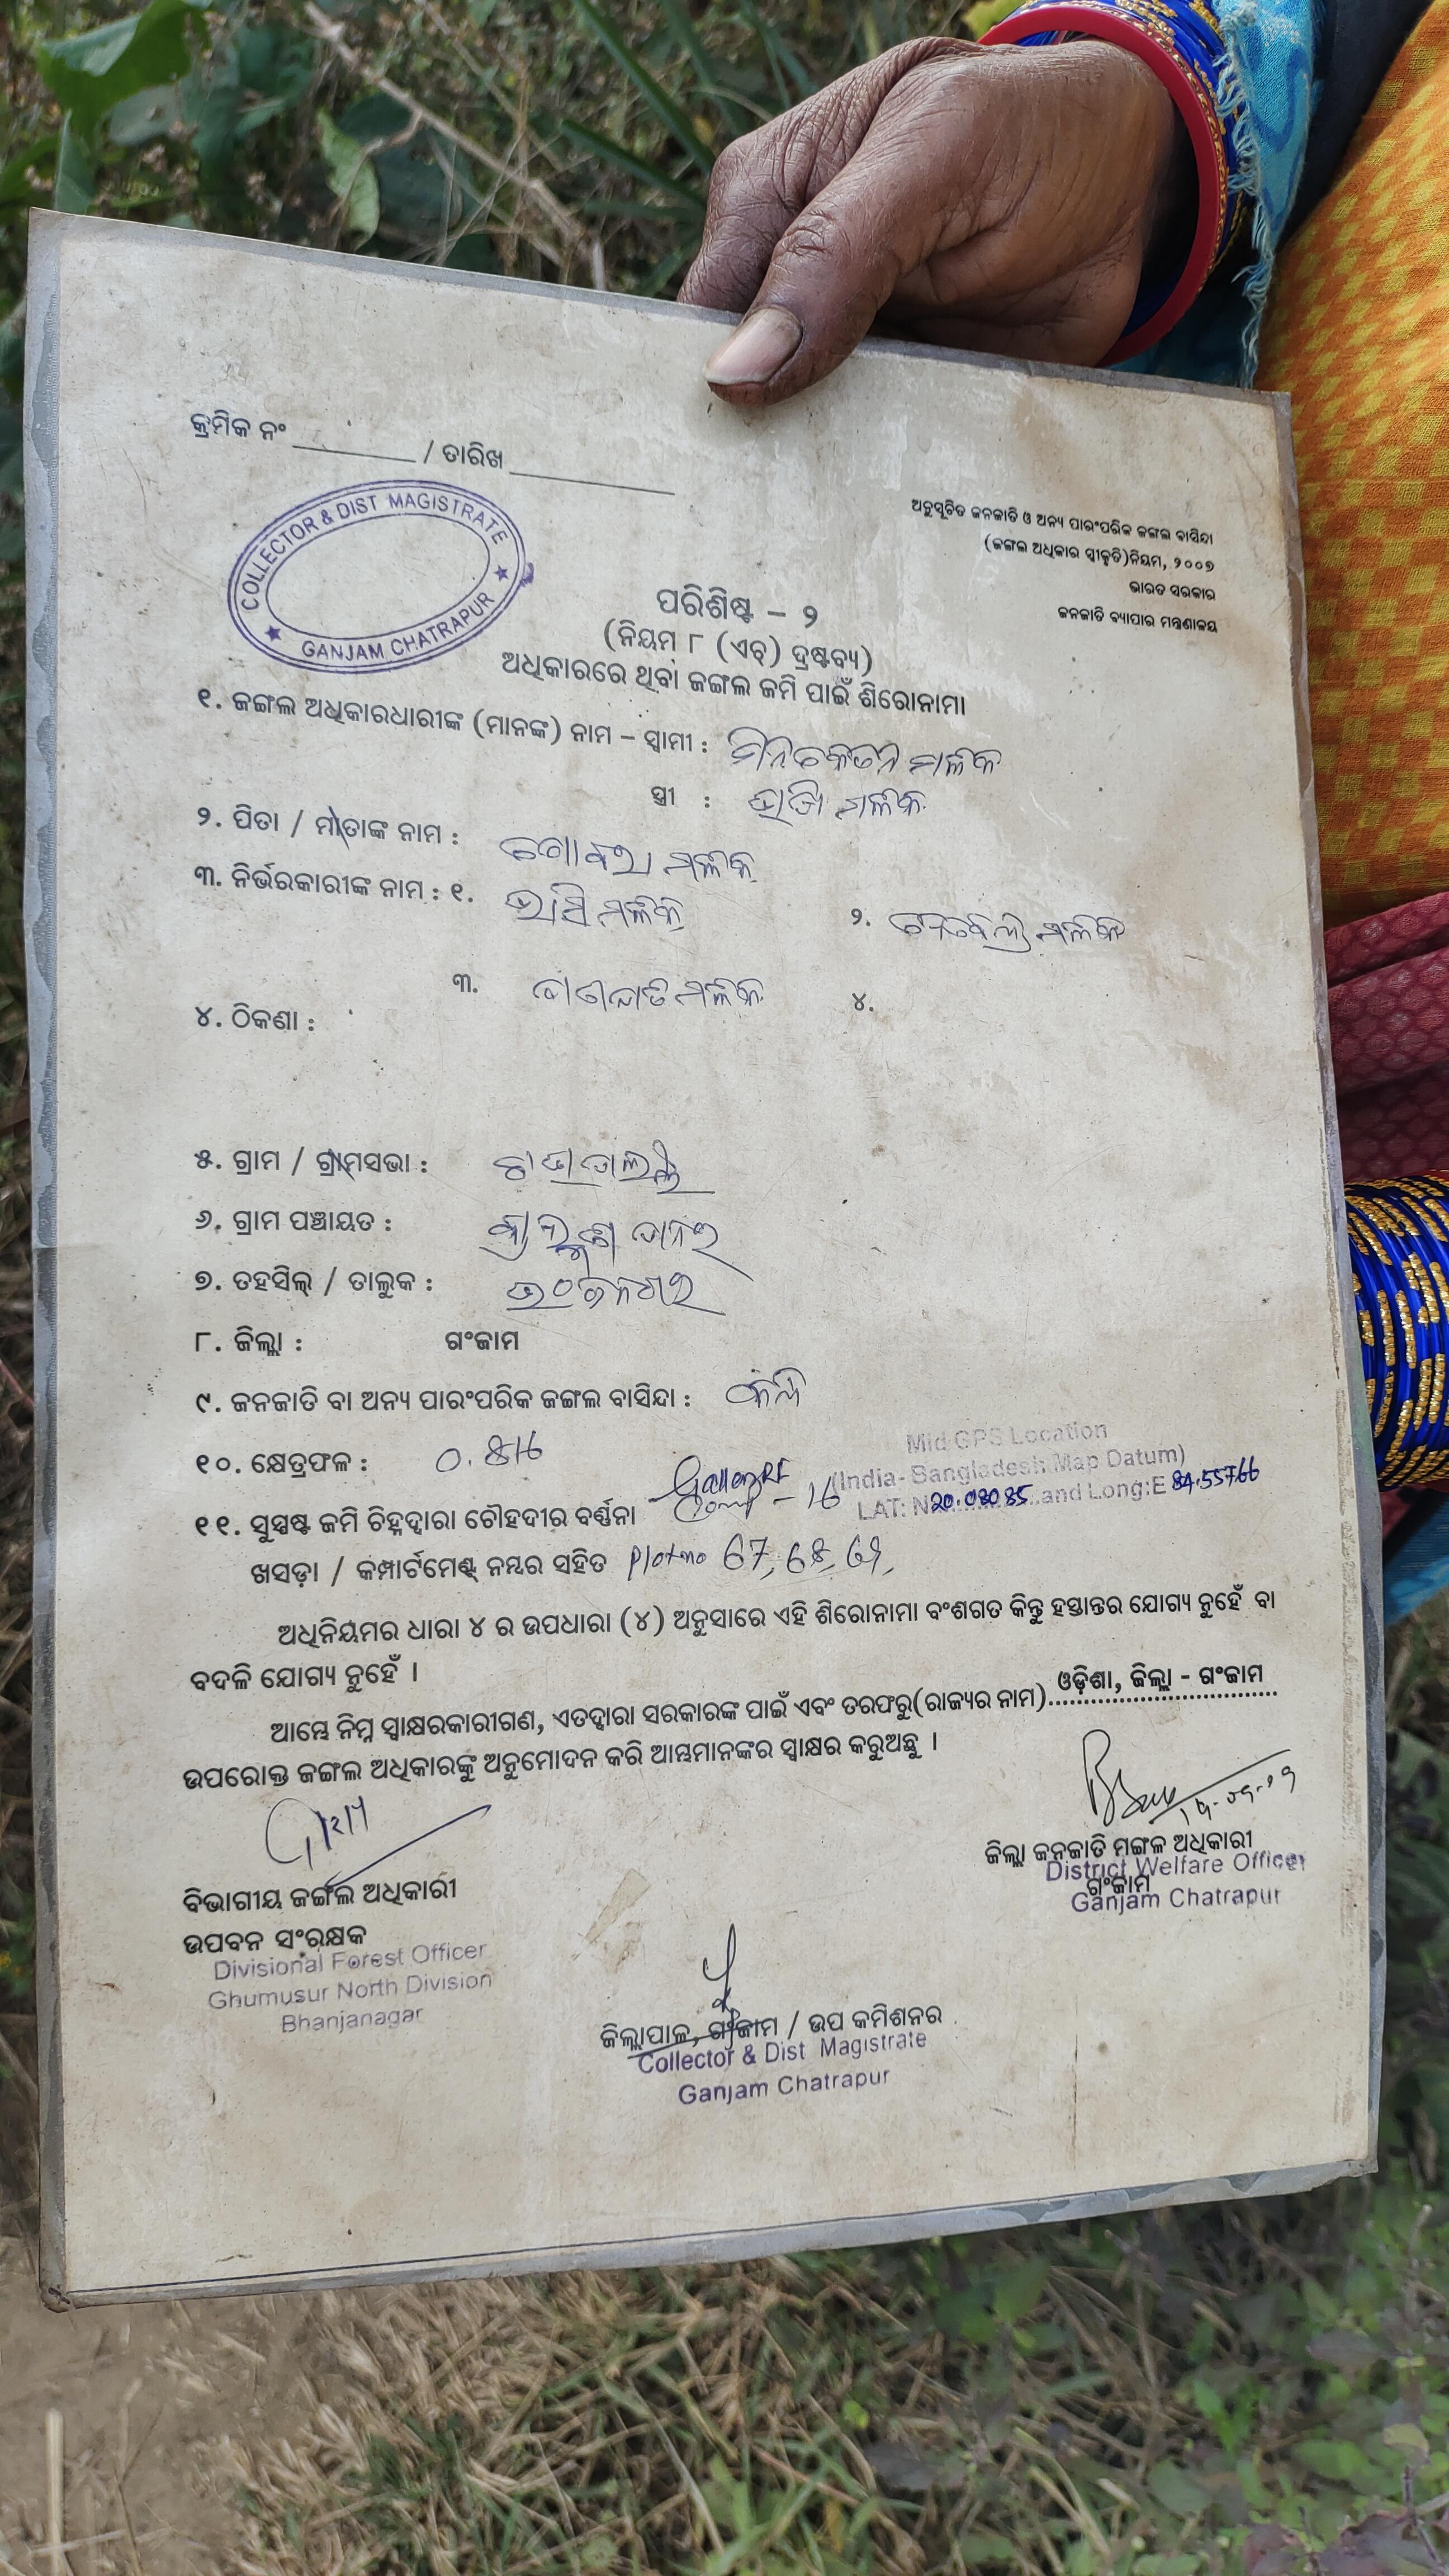 କ୍ରମିକ ନଂ ________ / ତାରିଖ ____________
COLLECTOR & DIST MAGISTRATE
★ GANJAM CHATRAPUR ★
ଅନୁସୂଚିତ ଜନଜାତି ଓ ଅନ୍ୟ ପାରଂପରିକ ଜଙ୍ଗଲ ବାସିନ୍ଦା
(ଜଙ୍ଗଲ ଅଧିକାର ସ୍ୱୀକୃତି)ନିୟମ, ୨୦୦୭
ଭାରତ ସରକାର
ଜନଜାତି ବ୍ୟାପାର ମନ୍ତ୍ରଣାଳୟ
ପରିଶିଷ୍ଟ – ୨
(ନିୟମ ୮ (ଏଚ୍) ଦ୍ରଷ୍ଟବ୍ୟ)
ଅଧିକାରରେ ଥିବା ଜଙ୍ଗଲ ଜମି ପାଇଁ ଶିରୋନାମା
୧. ଜଙ୍ଗଲ ଅଧିକାରଧାରୀଙ୍କ (ମାନଙ୍କ) ନାମ – ସ୍ୱାମୀ : ମଳିକ
ସ୍ତ୍ରୀ : ମଳିକ
୨. ପିତା / ମାତାଙ୍କ ନାମ : ମଳିକ
୩. ନିର୍ଭରକାରୀଙ୍କ ନାମ : ୧. ମଳିକ ୨. ମଳିକ
୩. ମଳିକ ୪.
୪. ଠିକଣା :
୫. ଗ୍ରାମ / ଗ୍ରାମସଭା :
୬. ଗ୍ରାମ ପଞ୍ଚାୟତ :
୭. ତହସିଲ୍ / ତାଲୁକ : ଭଂଜନଗର
୮. ଜିଲ୍ଲା : ଗଂଜାମ
୯. ଜନଜାତି ବା ଅନ୍ୟ ପାରଂପରିକ ଜଙ୍ଗଲ ବାସିନ୍ଦା :
୧୦. କ୍ଷେତ୍ରଫଳ :
Mid GPS Location
(India- Bangladesh Map Datum)
LAT: N and Long:E 84.55766
୧୧. ସୁସ୍ପଷ୍ଟ ଜମି ଚିହ୍ନଦ୍ୱାରା ଚୌହଦୀର ବର୍ଣ୍ଣନା – 16
ଖସଡ଼ା / କମ୍ପାର୍ଟମେଣ୍ଟ୍ ନମ୍ବର ସହିତ Plot no 67, 68, 69,
ଅଧିନିୟମର ଧାରା ୪ ର ଉପଧାରା (୪) ଅନୁସାରେ ଏହି ଶିରୋନାମା ବଂଶଗତ କିନ୍ତୁ ହସ୍ତାନ୍ତର ଯୋଗ୍ୟ ନୁହେଁ ବା
ବଦଳି ଯୋଗ୍ୟ ନୁହେଁ ।
ଆମ୍ଭେ ନିମ୍ନ ସ୍ୱାକ୍ଷରକାରୀଗଣ, ଏତଦ୍ୱାରା ସରକାରଙ୍କ ପାଇଁ ଏବଂ ତରଫରୁ(ରାଜ୍ୟର ନାମ) ଓଡ଼ିଶା, ଜିଲ୍ଲା - ଗଂଜାମ
ଉପରୋକ୍ତ ଜଙ୍ଗଲ ଅଧିକାରଙ୍କୁ ଅନୁମୋଦନ କରି ଆମ୍ଭମାନଙ୍କର ସ୍ୱାକ୍ଷର କରୁଅଛୁ ।
ଜିଲ୍ଲା ଜନଜାତି ମଙ୍ଗଳ ଅଧିକାରୀ
District Welfare Officer
ଗଂଜାମ
Ganjam Chatrapur
ବିଭାଗୀୟ ଜଙ୍ଗଲ ଅଧିକାରୀ
ଉପବନ ସଂରକ୍ଷକ
Divisional Forest Officer
Ghumusur North Division
Bhanjanagar
ଜିଲ୍ଲାପାଳ, ଗଂଜାମ / ଉପ କମିଶନର
Collector & Dist Magistrate
Ganjam Chatrapur